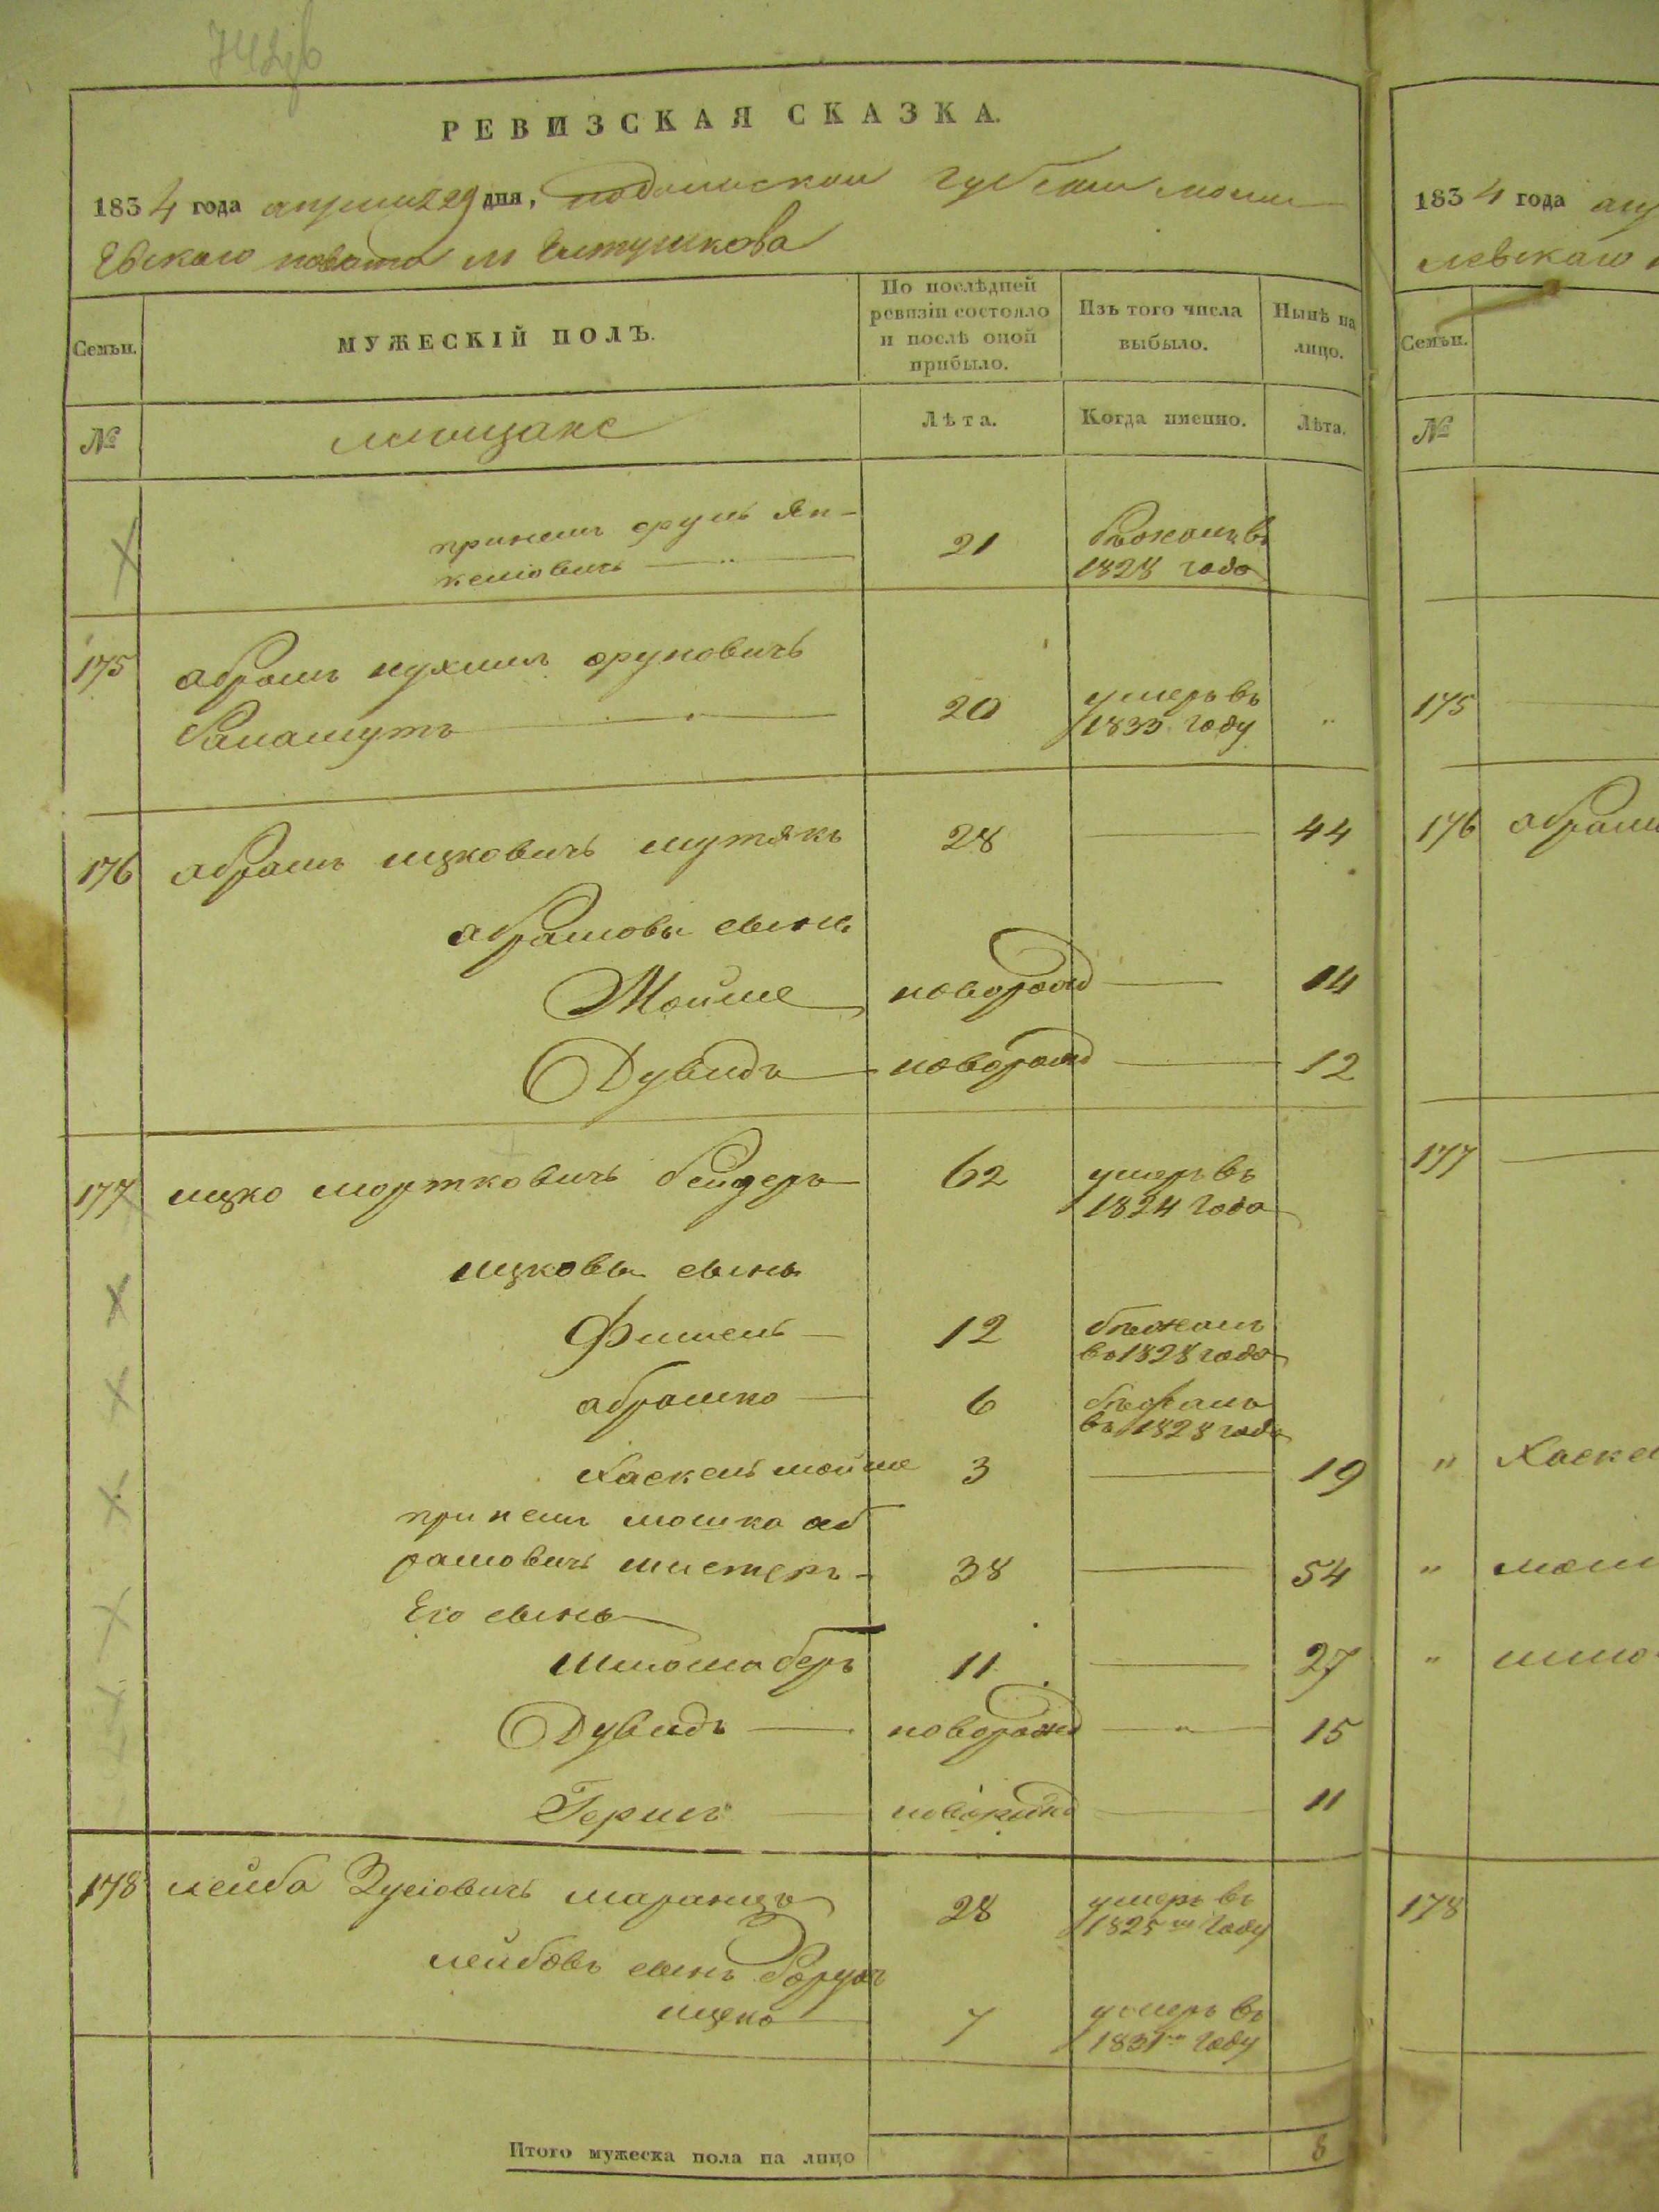 РЕВИЗСКАЯ СКАЗКА.
1834 года апреля 29 дня, подольской губернии могил
евскаго повета м Елтушкова
Семьи.
МУЖЕСКІЙ ПОЛЪ.
По послѣдней ревизіи состояло и послѣ оной прибыло.
Изъ того числа выбыло.
Нынѣ на лицо.
№
мещане
Лѣта.
Когда именно.
Лѣта.
арунь Ян-
келіовичъ 21 бѣжалъ въ
1828 года
175 абрамъ нухимъ аруновичъ
20 умеръ въ
1833 году "
176 абрамъ ицковичъ 28 44
абрамовы сыны
Мойше новорожд 14
Дувидъ новорожд 12
177 ицко мортковичъ 62 умеръ въ
1824 года
ицковы сыны
Фишель 12 бѣжалъ
въ 1828 года
абрамко 6 бѣжалъ
въ 1828 года
Хаскель мойше 3 19
мошко аб
рамовичъ 38 54
Его сыны
Шліома беръ 11 27
Дувидъ новорожд " 15
Гершъ новорожд 11
178 лейба Зусіовичъ маранцъ 28 умеръ въ
1825 го году
лейбовъ сынъ борухъ
ицко 7 умеръ въ
1831 го году
Итого мужеска пола на лицо 8
1834 года апр
левскаго
Семьи.
№
175
176 абрам
177
" Хаскел
" мош
" шліо
178